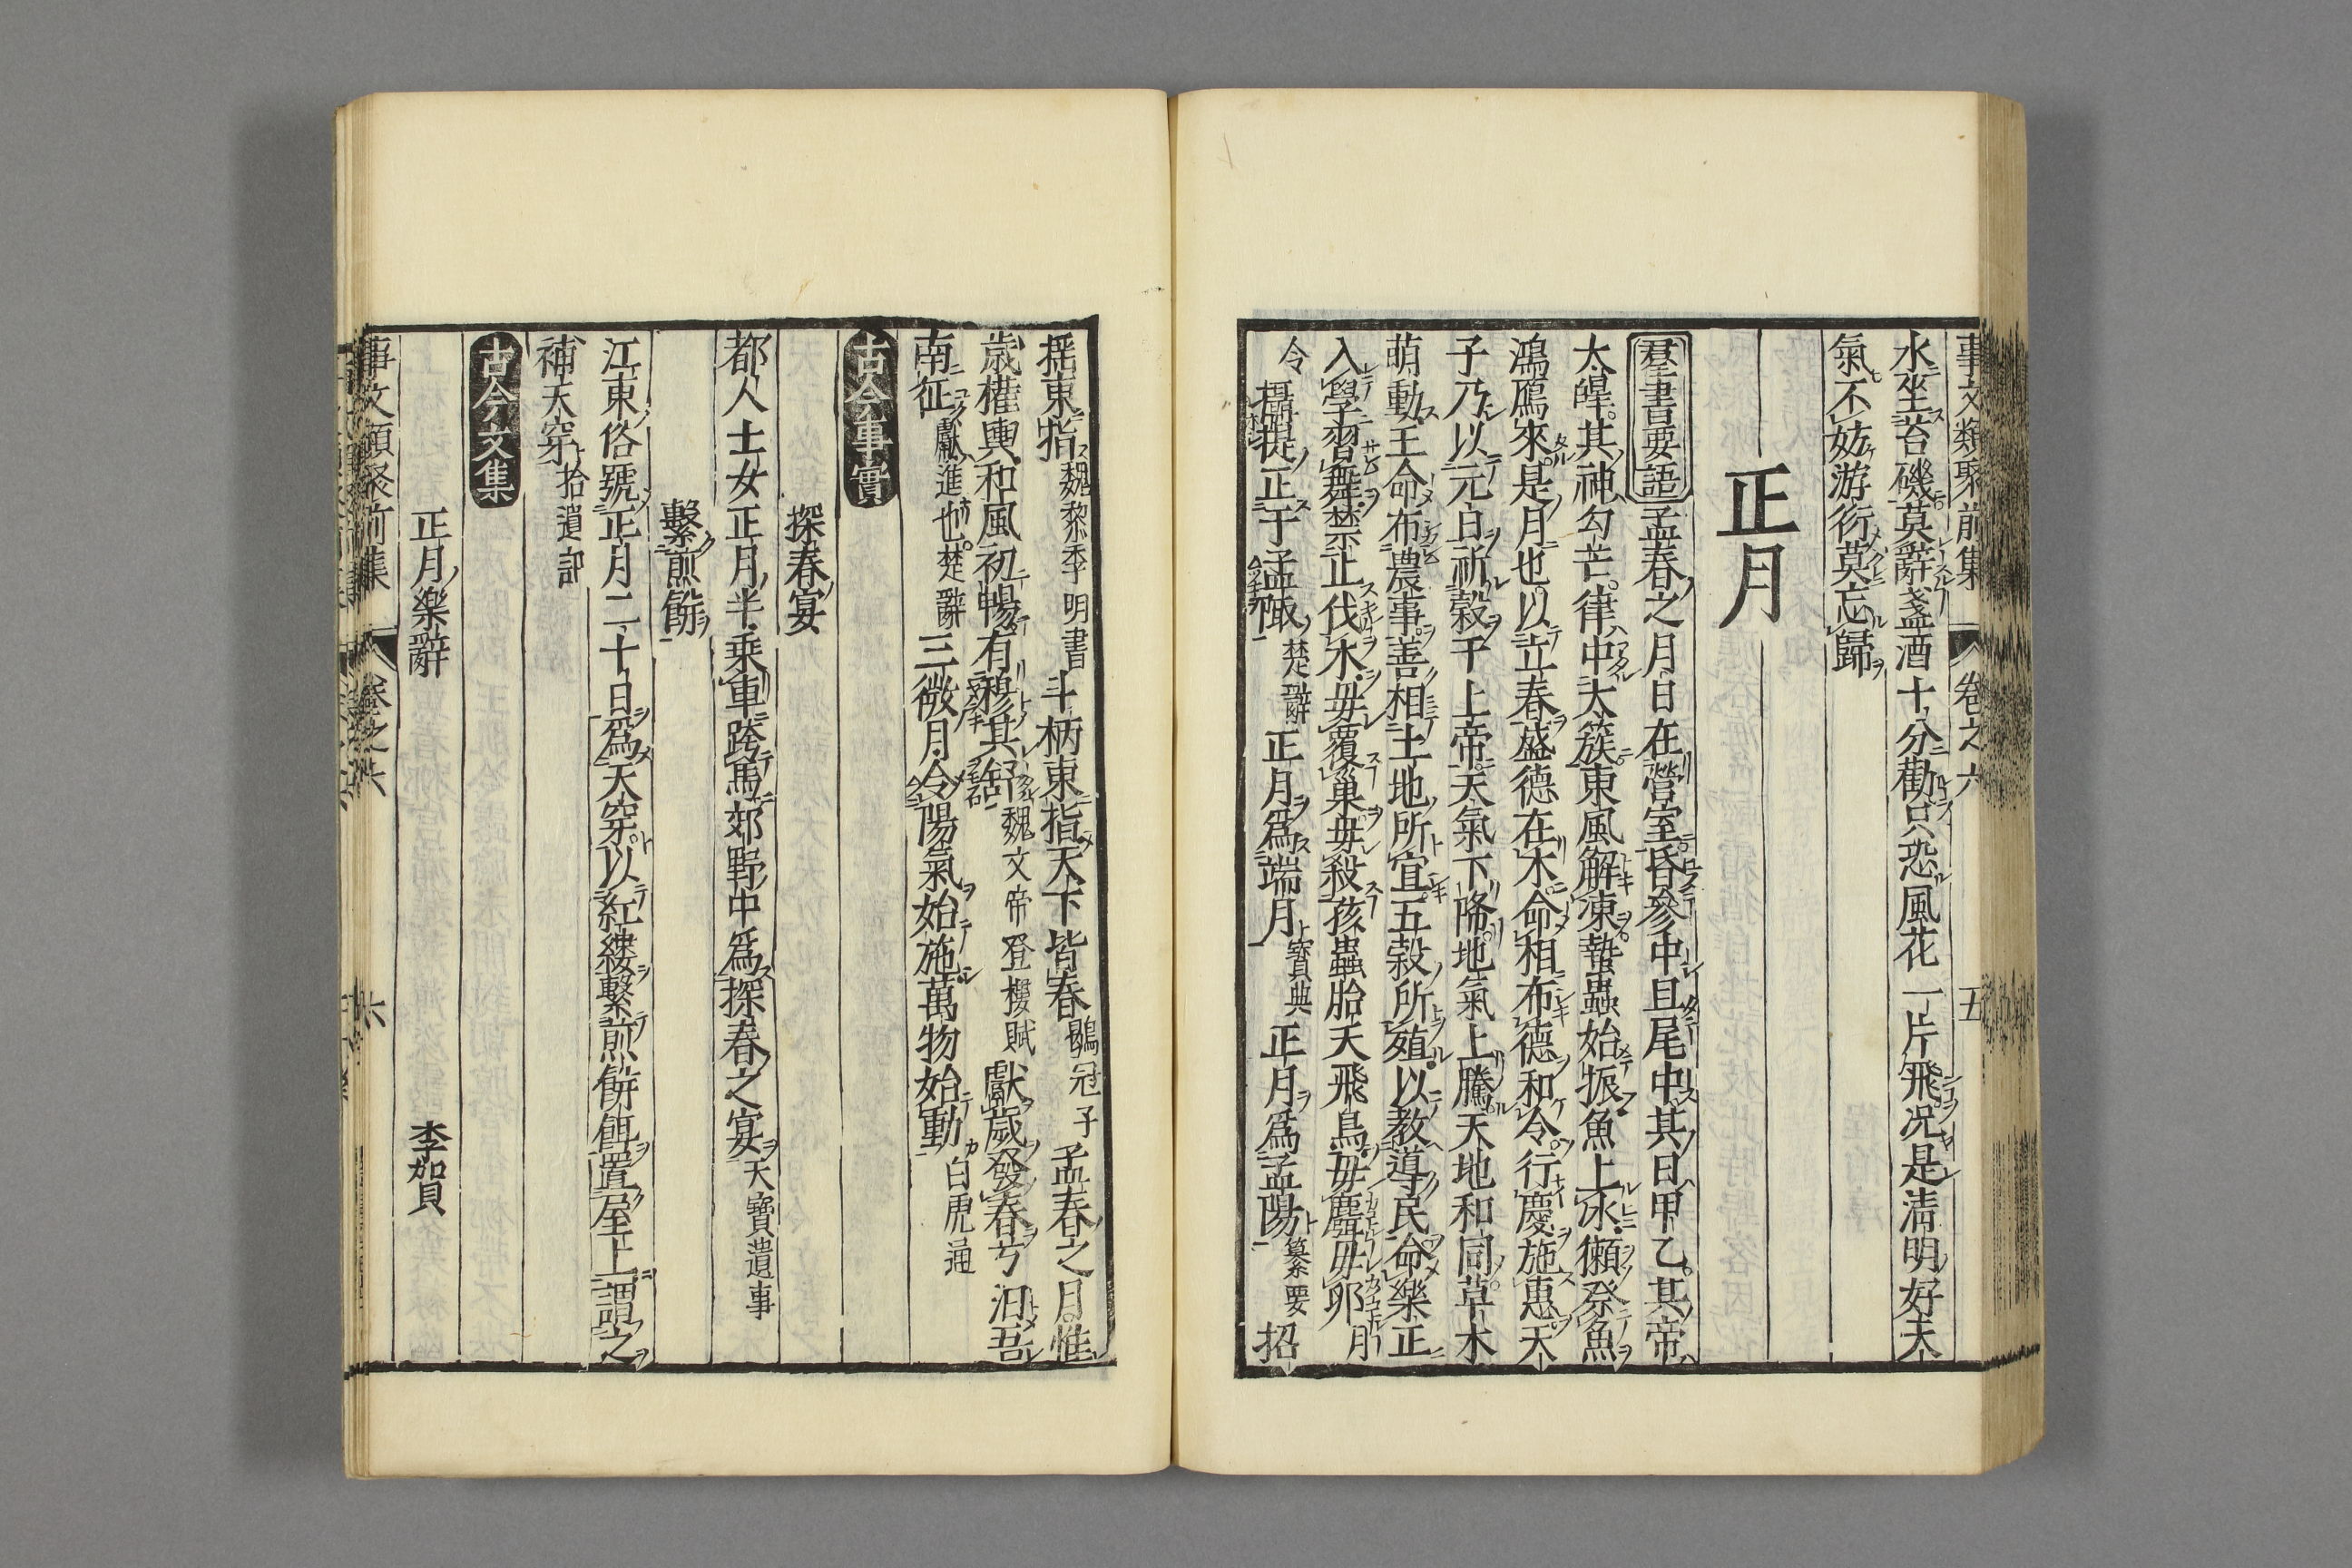 事文類聚前集 卷之六 五
水坐苔磯莫辭盞酒十分勸只恐風花一片飛况是淸明好天
氣不妨游衍莫忘歸
正月
羣書要語 孟春之月日在營室昏參中旦尾中其日甲乙其帝
大皥其神勾芒律中大簇東風解凍蟄蟲始振魚上氷獺祭魚
鴻鴈來是月也以立春盛德在木命相布德和令行慶施惠天
子乃以元日祈穀于上帝天氣下降地氣上騰天地和同草木
萌動王命布農事善相土地所宜五穀所殖以教導民命樂正
入學習舞禁止伐木毋覆巢毋殺孩蟲胎夭飛鳥毋麛毋卵月
令 攝提正于孟陬楚辭 正月爲端月寶典 正月爲孟陽纂要 招
揺東指魏黎季明書 斗柄東指天下皆春鶡冠子 孟春之月惟
歲權輿和風初暢有穆其舒魏文帝登樓賦 獻歲發春兮汩吾
南征獻進也楚辭 三微月令陽氣始施萬物始動白虎通
古今事實
探春宴
都人士女正月半乘車跨馬郊野中爲探春之宴天寶遺事
繫煎餅
江東俗號正月二十日爲天穿以紅縷繫煎餅餌置屋上謂之
補天穿拾遺記
古今文集
正月樂辭 李賀
事文類聚前集 卷之六 六